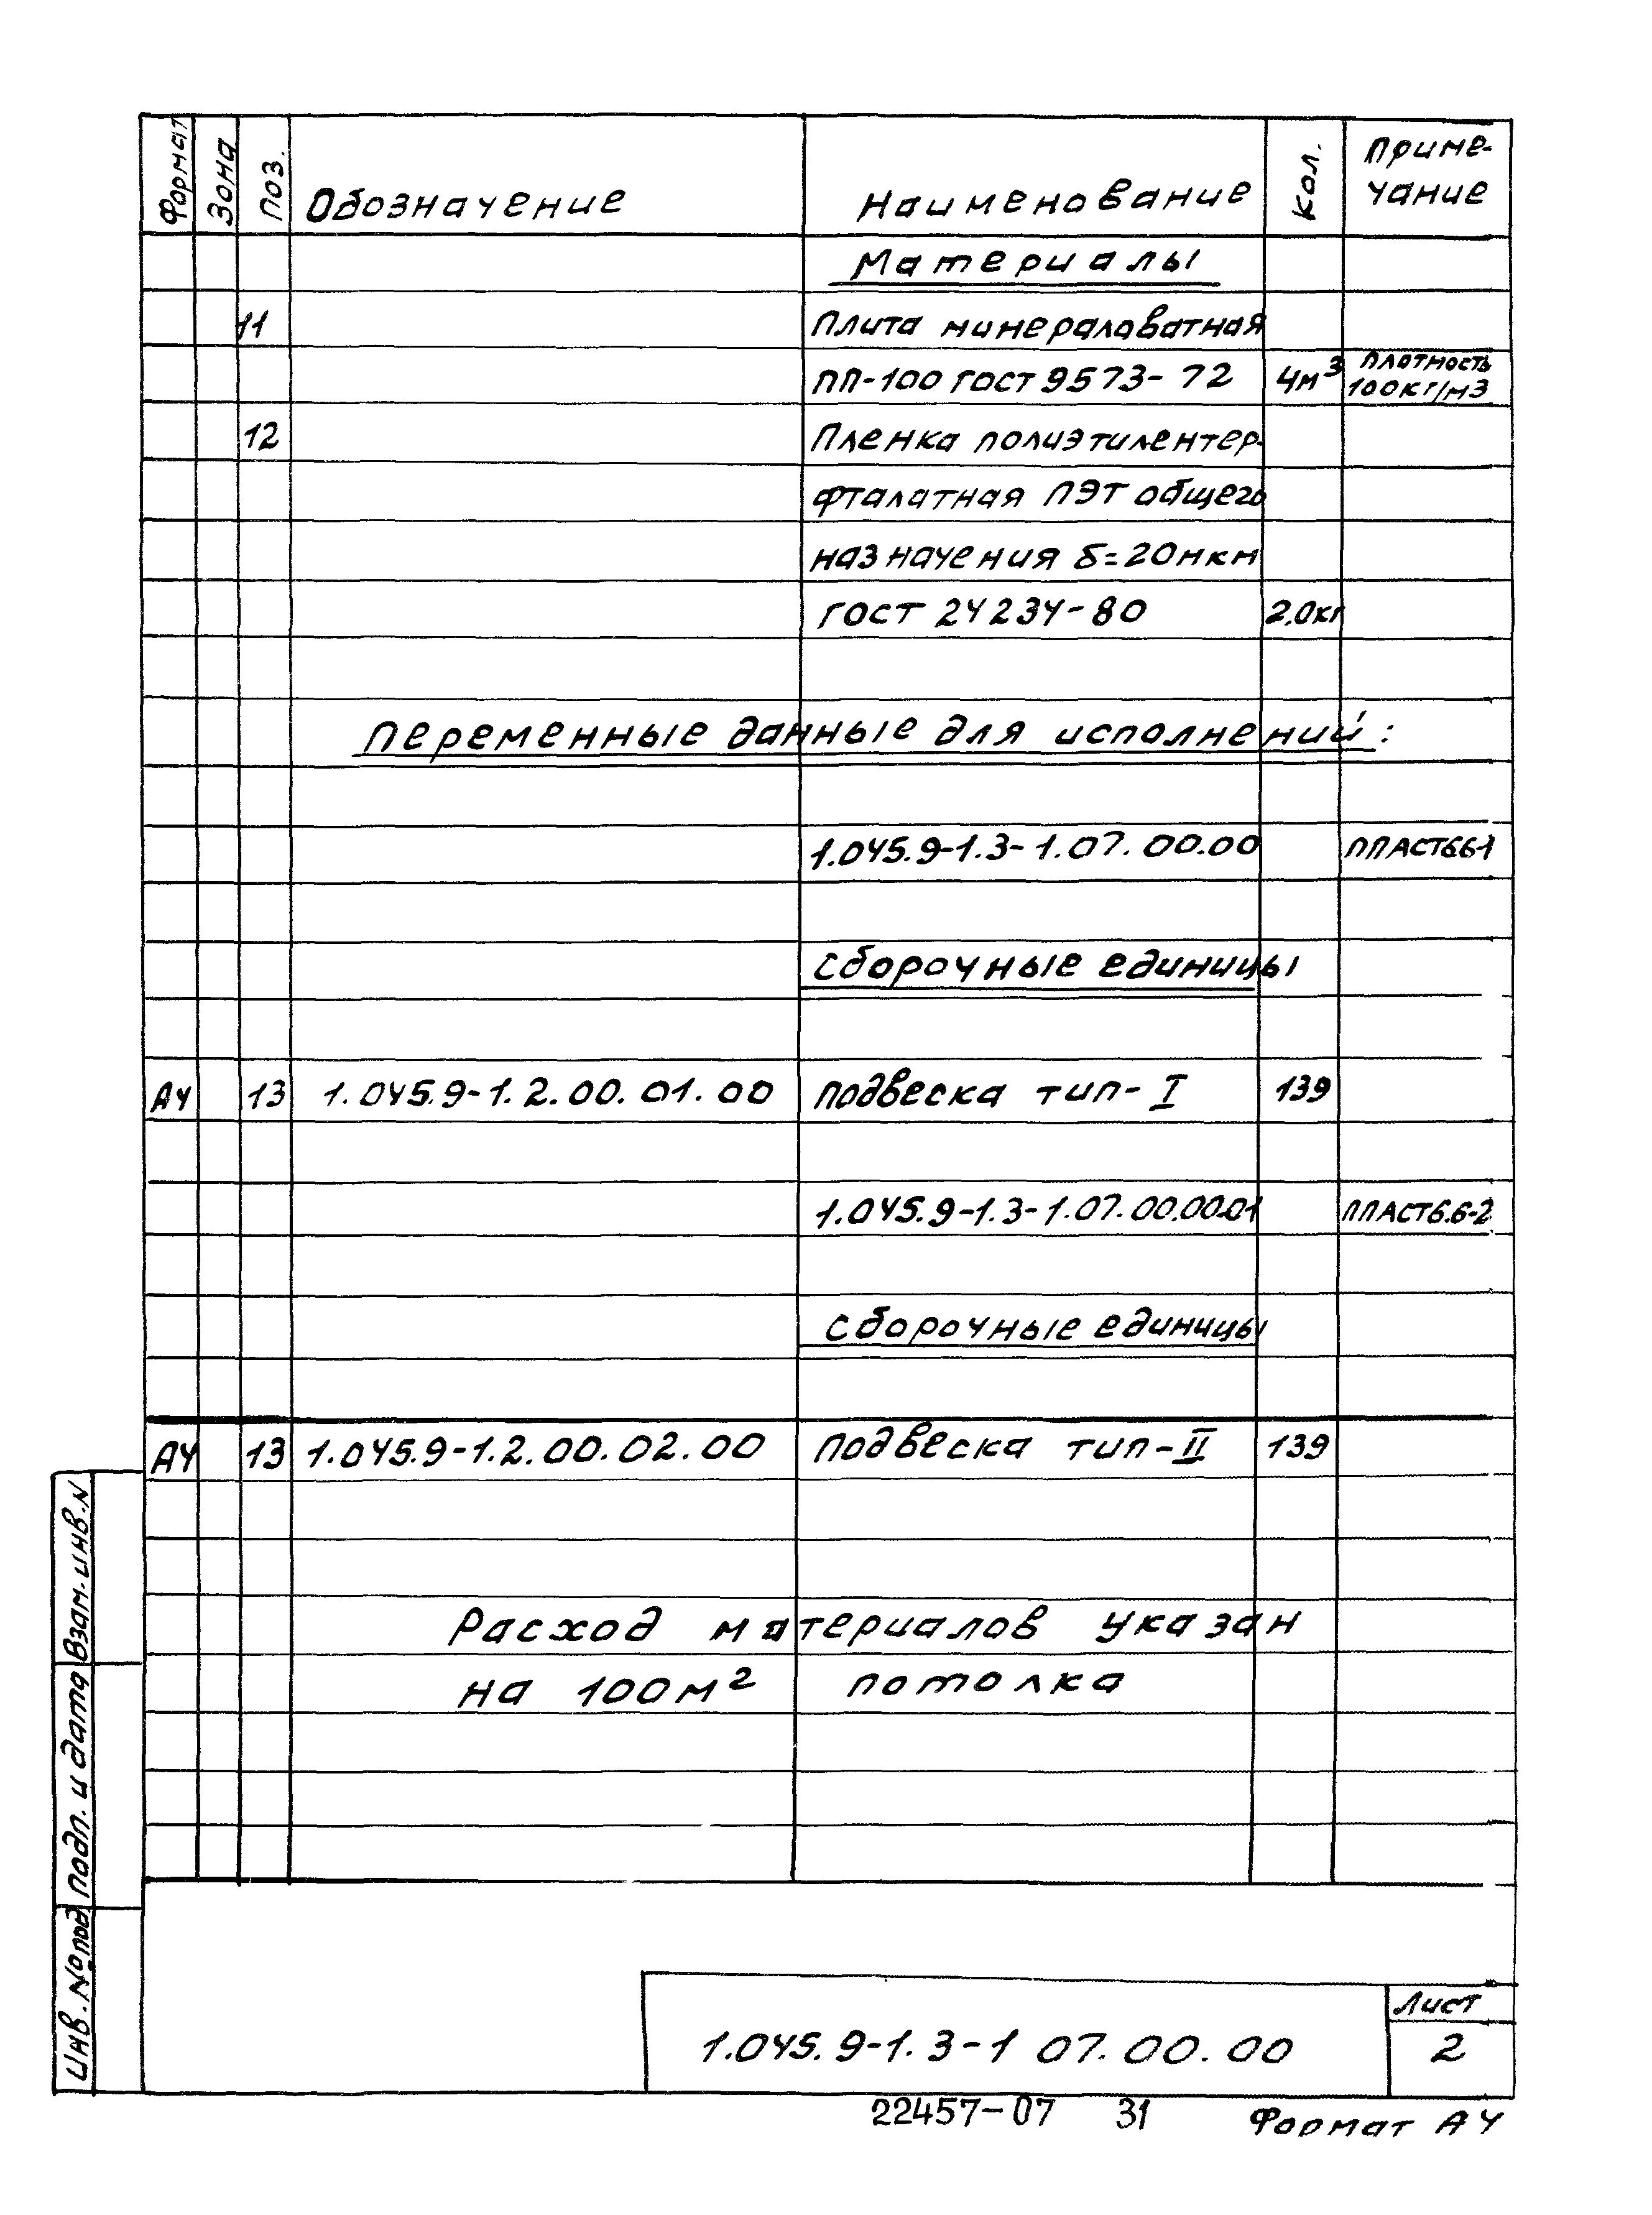 Формат Зона Поз. Обозначение Наименование Кол. Приме-
чание
Материалы
11 Плита минераловатная
ПП-100 ГОСТ 9573-72 4м³ Плотность
100кг/м3
12 Пленка полиэтилентер-
фталатная ПЭТ общего
назначения δ=20мкм
ГОСТ 24234-80 2.0кг
Переменные данные для исполнений:
1.045.9-1.3-1.07.00.00 ППАСТ6.6-1
Сборочные единицы
А4 13 1.045.9-1.2.00.01.00 Подвеска тип-I 139
1.045.9-1.3-1.07.00.00-01 ППАСТ6.6-2
Сборочные единицы
А4 13 1.045.9-1.2.00.02.00 Подвеска тип-II 139
Расход материалов указан
на 100м² потолка
Взам.инв.N
Подп. и дата
Инв.№подл
1.045.9-1.3-1 07.00.00
Лист
2
22457-07 31
Формат А4